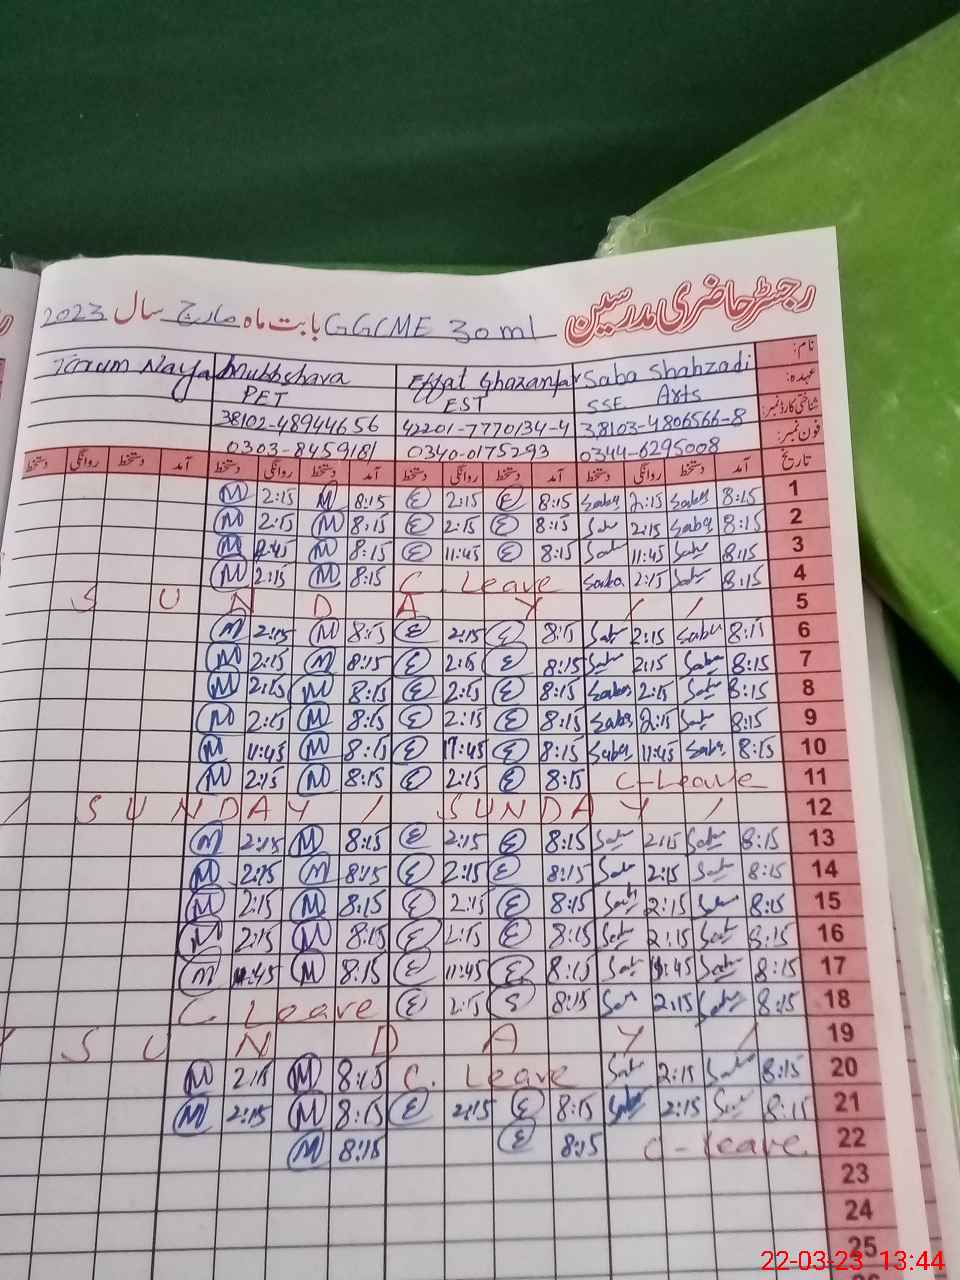 رجسٹر حاضری مدرسین GGCME 30 ml بابت ماہ مارچ سال 2023
نام: Saba Shahzadi Effat Ghazanfar Mubbshara
عہدہ: SSE Arts EST PET
شناختی کارڈ نمبر: 38103-4806566-8 42201-7770134-4 38102-48944656
فون نمبر: 0344-6295008 0340-0175293 0303-8459181
تاریخ آمد دستخط روانگی دستخط آمد دستخط روانگی دستخط آمد دستخط روانگی دستخط آمد دستخط روانگی دستخط
1 8:15 Saba 2:15 Saba 8:15 E 2:15 E 8:15 M 2:15 M
2 8:15 Saba 2:15 8:15 E 2:15 E 8:15 M 2:15 M
3 8:15 11:45 8:15 E 11:45 E 8:15 M M
4 8:15 2:15 Saba C. Leave 8:15 M 2:15 M
5 S U N D A Y / /
6 8:15 Saba 2:15 8:15 E 2:15 E 8:15 M 2:15 M
7 8:15 Saba 2:15 8:15 E 2:15 E 8:15 M 2:15 M
8 8:15 2:15 Saba 8:15 E 2:15 E 8:15 M 2:15 M
9 8:15 2:15 Saba 8:15 E 2:15 E 8:15 M 2:15 M
10 8:15 Saba 11:45 Saba 8:15 E 11:45 E 8:15 M 11:45 M
11 C-Leave 8:15 E 2:15 E 8:15 M 2:15 M
12 / S U N D A Y / S U N D A Y /
13 8:15 2:15 8:15 E 2:15 E 8:15 M 2:15 M
14 8:15 2:15 8:15 E 2:15 E 8:15 M 2:15 M
15 8:15 2:15 8:15 E 2:15 E 8:15 M 2:15 M
16 8:15 2:15 8:15 E 2:15 E 8:15 M 2:15 M
17 8:15 11:45 8:15 E 11:45 E 8:15 M 11:45 M
18 8:15 2:15 8:15 E 2:15 E C. Leave
19 Y S U N D A Y /
20 8:15 2:15 C. Leave 8:15 M 2:15 M
21 8:15 2:15 Saba 8:15 E 2:15 E 8:15 M 2:15 M
22 C-Leave 8:15 E 8:15 M
23
24
25
22-03-23 13:44